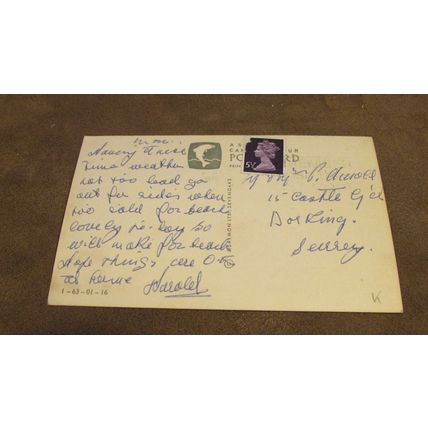 Mon.
Having a nice
time weather
not too bad go
out for rides when
too cold for beach
lovely to-day so
will make for beach
Hope things are O.K
at home
Harold
1-63-01-16
A S
CA UR
PO RD
5½P
Arnold
15 Castle
Dorking.
Surrey.
LTD. SEVENOAKS
K